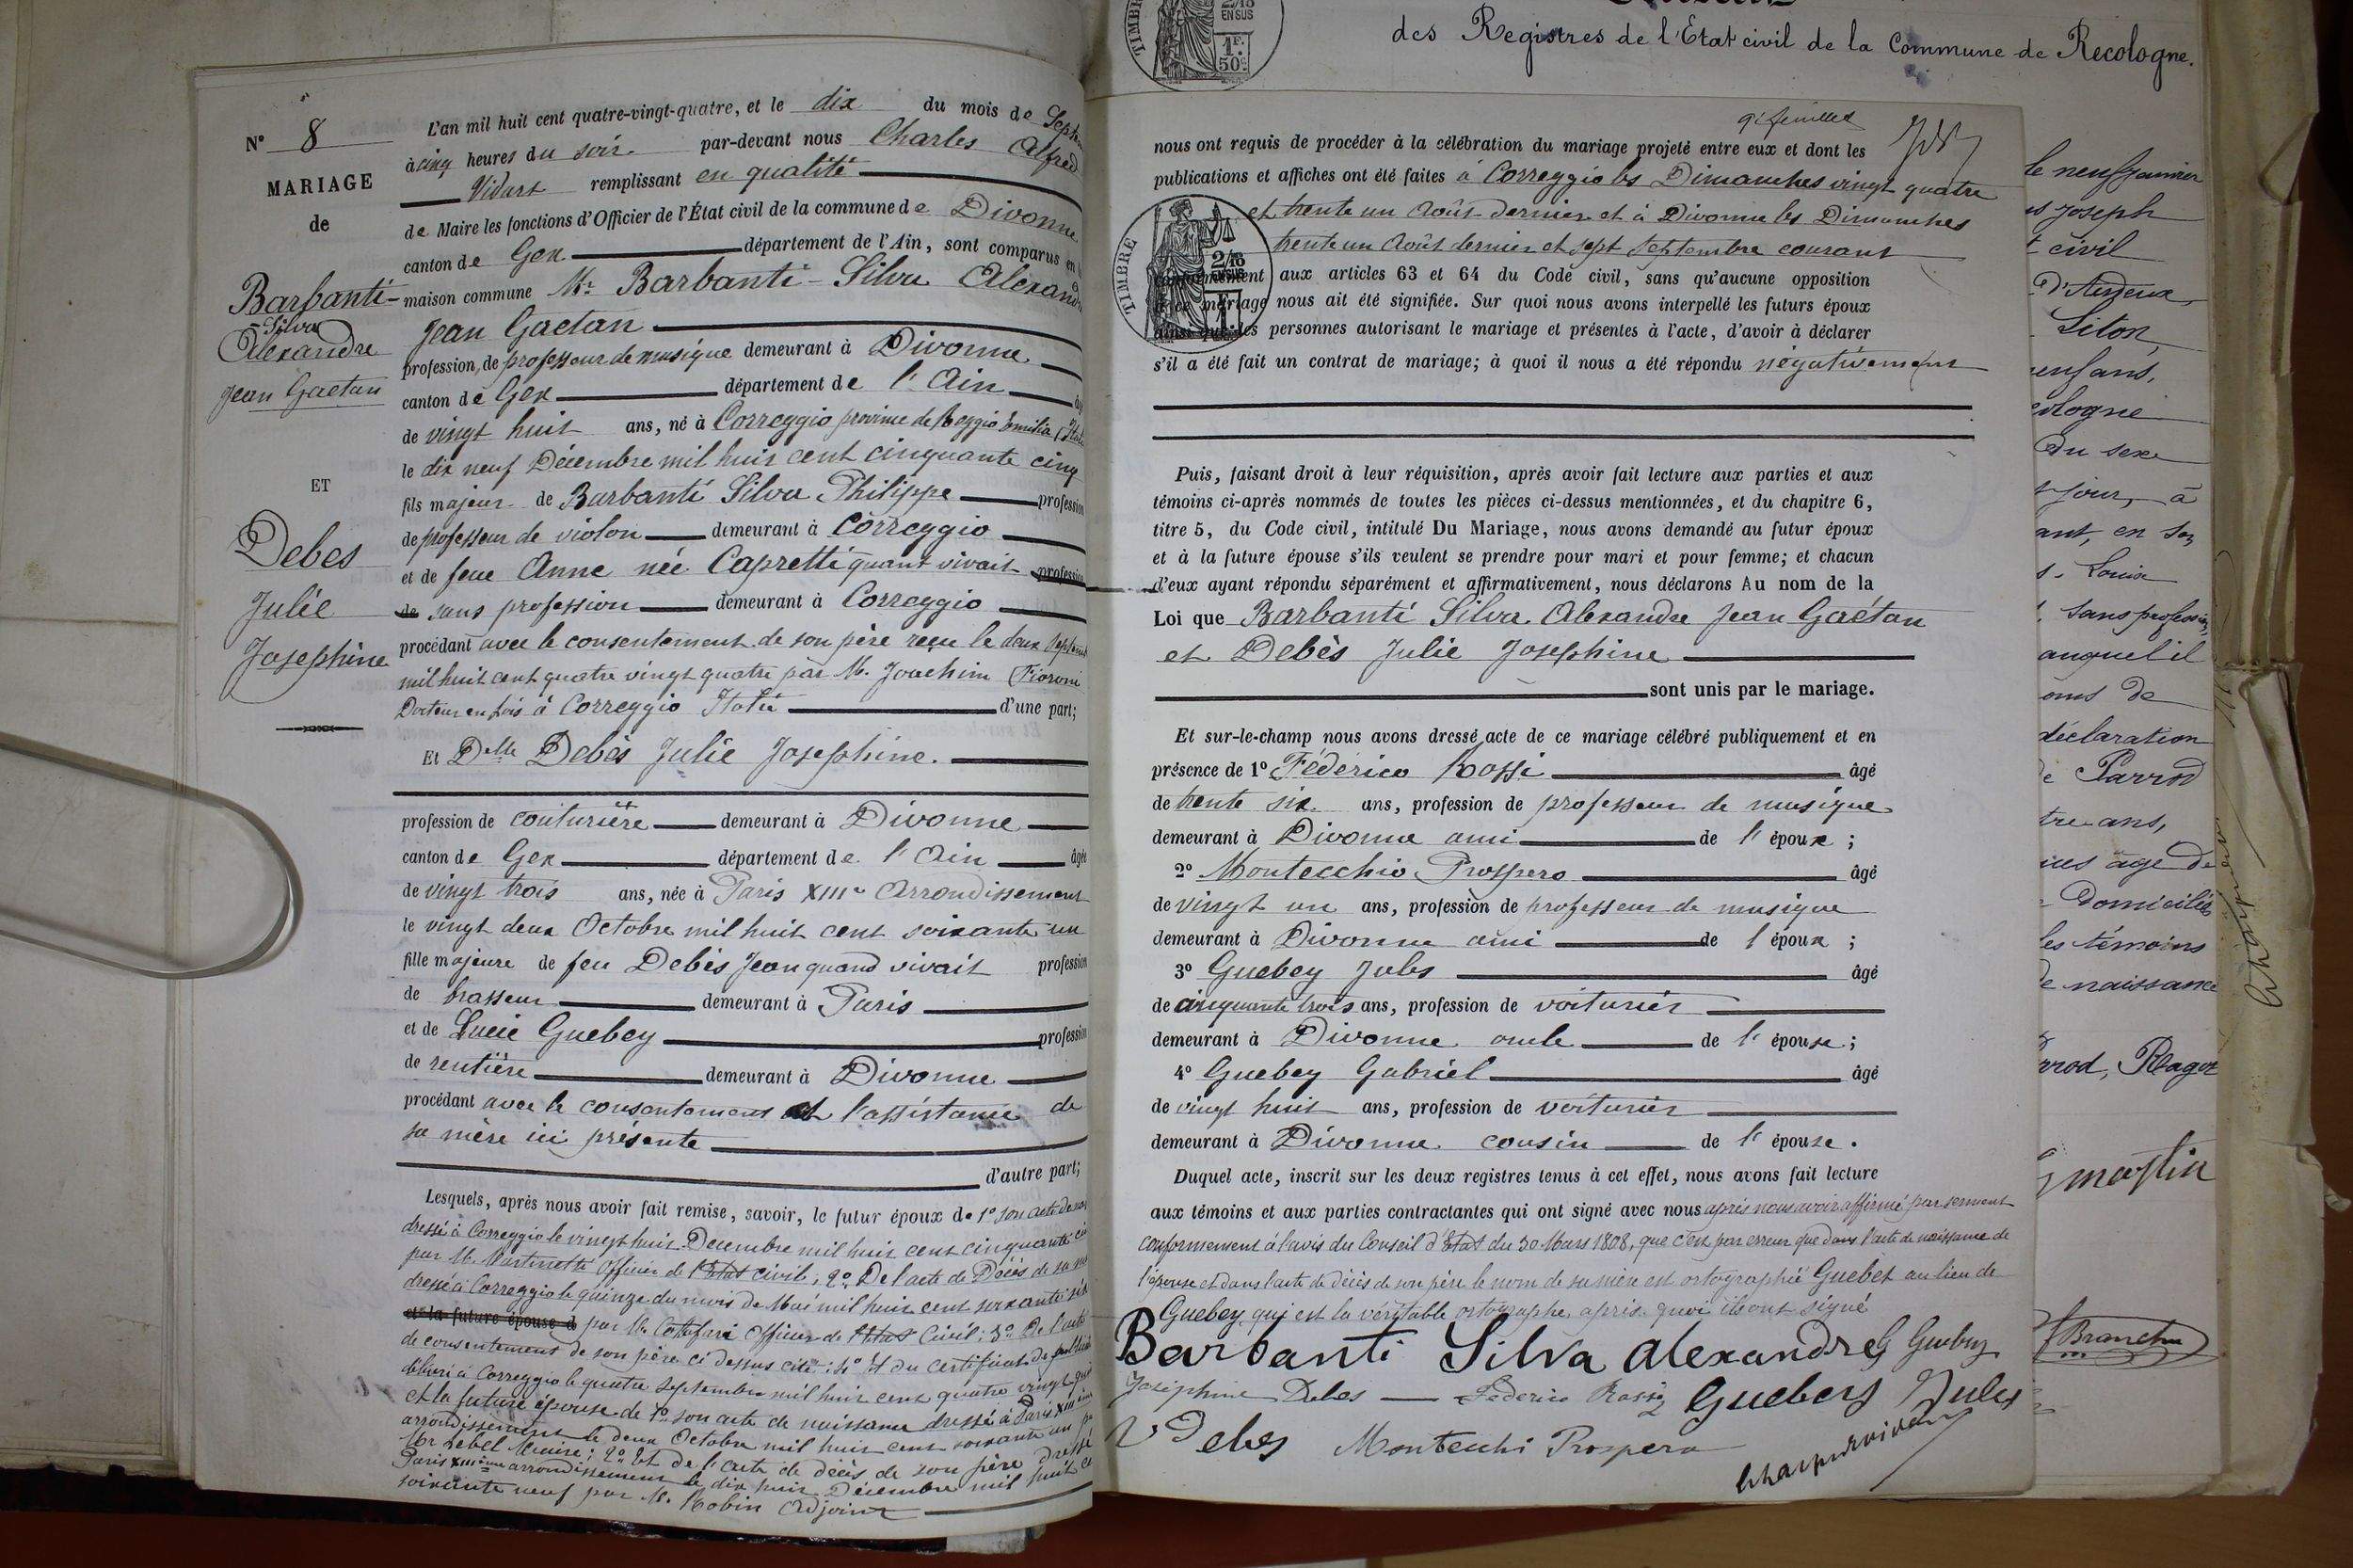 N° 8
MARIAGE
de
Barbanti-
-Silva
Alexandre
Jean Gaetan
ET
Debes
Julie
Josephine
L'an mil huit cent quatre-vingt-quatre, et le dix du mois de Septem
à cinq heures du soir par-devant nous Charles Alfred
Vidart remplissant en qualité
de Maire les fonctions d'Officier de l'État civil de la commune de Divonne
canton de Gex département de l'Ain, sont comparus en
maison commune Mr Barbanti-Silva Alexand
Jean Gaetan
profession, de professeur de musique demeurant à Divonne
canton de Gex département de l'Ain
de vingt huit ans, né à Correggio province de Reggio Emilia (Italie
le dix neuf Décembre mil huit cent cinquante cinq
fils majeur de Barbanti Silva Philippe profession
de professeur de violon demeurant à Correggio
et de feue Anne née Capretti quand vivait profession
de sans profession demeurant à Correggio
procédant avec le consentement de son père reçu le deux Septem
mil huit cent quatre vingt quatre par M. Joachim Fioroni
Docteur en Lois à Correggio Italie d'une part;
Et Delle Debès Julie Josephine.
profession de couturière demeurant à Divonne
canton de Gex département de l'Ain âgée
de vingt trois ans, née à Paris XIIIe Arrondissement
le vingt deux Octobre mil huit cent soixante un
fille majeure de feu Debès Jean quand vivait profession
de brasseur demeurant à Paris
et de Lucie Guebey profession
de rentière demeurant à Divonne
procédant avec le consentement et l'assistance de
sa mère ici présente
d'autre part;
Lesquels, après nous avoir fait remise, savoir, le futur époux de 1° son acte de
dressé à Correggio le vingt huit Décembre mil huit cent cinquante
par M. Martinetti Officier de l'Etat civil; 2° De l'acte de Décès de sa
dressé à Correggio le quinze du mois de Mai mil huit cent soixante
et la future épouse d par M. Officier de l'Etat Civil; 3° De l'acte
de consentement de son père ci dessus cité; 4° Et du certificat de
délivré à Correggio le quatre Septembre mil huit cent quatre vingt
et la future épouse de 1° son acte de naissance dressé à Paris XIII
arrondissement le deux Octobre mil huit cent soixante un
Mr Lebel Maire; 2° Et de l'acte de décès de son père dressé
Paris XIIIème arrondissement le dix huit Décembre mil huit
soixante neuf par M. Robin Adjoint
des Registres de l'Etat civil de la Commune de Recologne.
TIMBRE
2/10
EN SUS
1F.
50c
9e feuillet
nous ont requis de procéder à la célébration du mariage projeté entre eux et dont les
publications et affiches ont été faites à Correggio les Dimanches vingt quatre
et trente un Août dernier et à Divonne les Dimanches
trente un Août dernier et sept Septembre courant
TIMBRE
2/10
EN SUS
conformément aux articles 63 et 64 du Code civil, sans qu'aucune opposition
à ce mariage nous ait été signifiée. Sur quoi nous avons interpellé les futurs époux
ainsi que les personnes autorisant le mariage et présentes à l'acte, d'avoir à déclarer
s'il a été fait un contrat de mariage; à quoi il nous a été répondu négativement
Puis, faisant droit à leur réquisition, après avoir fait lecture aux parties et aux
témoins ci-après nommés de toutes les pièces ci-dessus mentionnées, et du chapitre 6,
titre 5, du Code civil, intitulé Du Mariage, nous avons demandé au futur époux
et à la future épouse s'ils veulent se prendre pour mari et pour femme; et chacun
d'eux ayant répondu séparément et affirmativement, nous déclarons Au nom de la
Loi que Barbanti Silva Alexandre Jean Gaétan
et Debès Julie Josephine
sont unis par le mariage.
Et sur-le-champ nous avons dressé acte de ce mariage célébré publiquement et en
présence de 1° Féderico Rossi âgé
de trente six ans, profession de professeur de musique
demeurant à Divonne ami de l'époux;
2° Montecchio Prospero âgé
de vingt un ans, profession de professeur de musique
demeurant à Divonne ami de l'époux;
3° Guebey Jules âgé
de cinquante trois ans, profession de voiturier
demeurant à Divonne oncle de l'épouse;
4° Guebey Gabriel âgé
de vingt huit ans, profession de voiturier
demeurant à Divonne cousin de l'épouse.
Duquel acte, inscrit sur les deux registres tenus à cet effet, nous avons fait lecture
aux témoins et aux parties contractantes qui ont signé avec nous après nous avoir affirmé par serment
conformément à l'avis du Conseil d'Etat du 30 Mars 1808, que c'est par erreur que dans l'acte de naissance de
l'épouse et dans l'acte de décès de son père le nom de sa mère est ortographié Guebet au lieu de
Guebey, qui est la véritable ortographe, après quoi ils ont signé
Barbanti Silva Alexandre G Guebey
Joséphine Debes Federico Rossi Guebey Jules
Ve Debes Montecchi Prospero
le neuf janvier
Joseph
civil
Liton,
enfans,
cologne
du sexe
jour, à
ant, en son
Louise
sans profession,
auquel il
oms de
déclaration
de Parrod
tre ans,
âgé de
Domiciliés
les témoins
de naissance
rrod, Ragot
martin